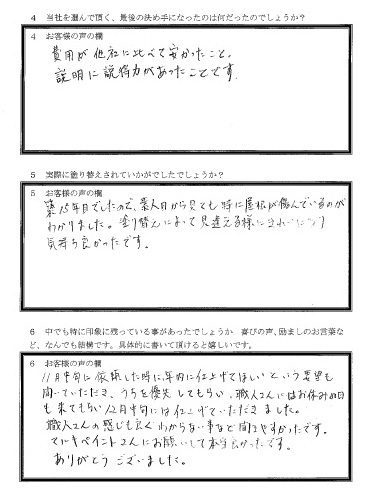 4 当社を選んで頂く、最後の決め手になったのは何だったのでしょうか?
4 お客様の声の欄
費用が他社に比べて安かったこと。
説明に説得力があったことです。
5 実際に塗り替えされていかがでしたでしょうか?
5 お客様の声の欄
築15年目でしたので、素人目から見ても特に屋根が傷んでいるのが
わかりました。塗り替えによって見違える様にきれいになり
気持ち良かったです。
6 中でも特に印象に残っている事があったでしょうか 喜びの声、励ましのお言葉な
ど、なんでも結構です。具体的に書いて頂けると嬉しいです。
6 お客様の声の欄
11月中旬に依頼した時に、年内に仕上げてほしいという要望も
聞いていただき、うちを優先してもらい、職人さんにはお休みの日
も来てもらい12月中旬には仕上げていただきました。
職人さんの感じも良くわからない事など聞きやすかったです。
テルキペイントさんにお願いして本当良かったです。
ありがとうございました。